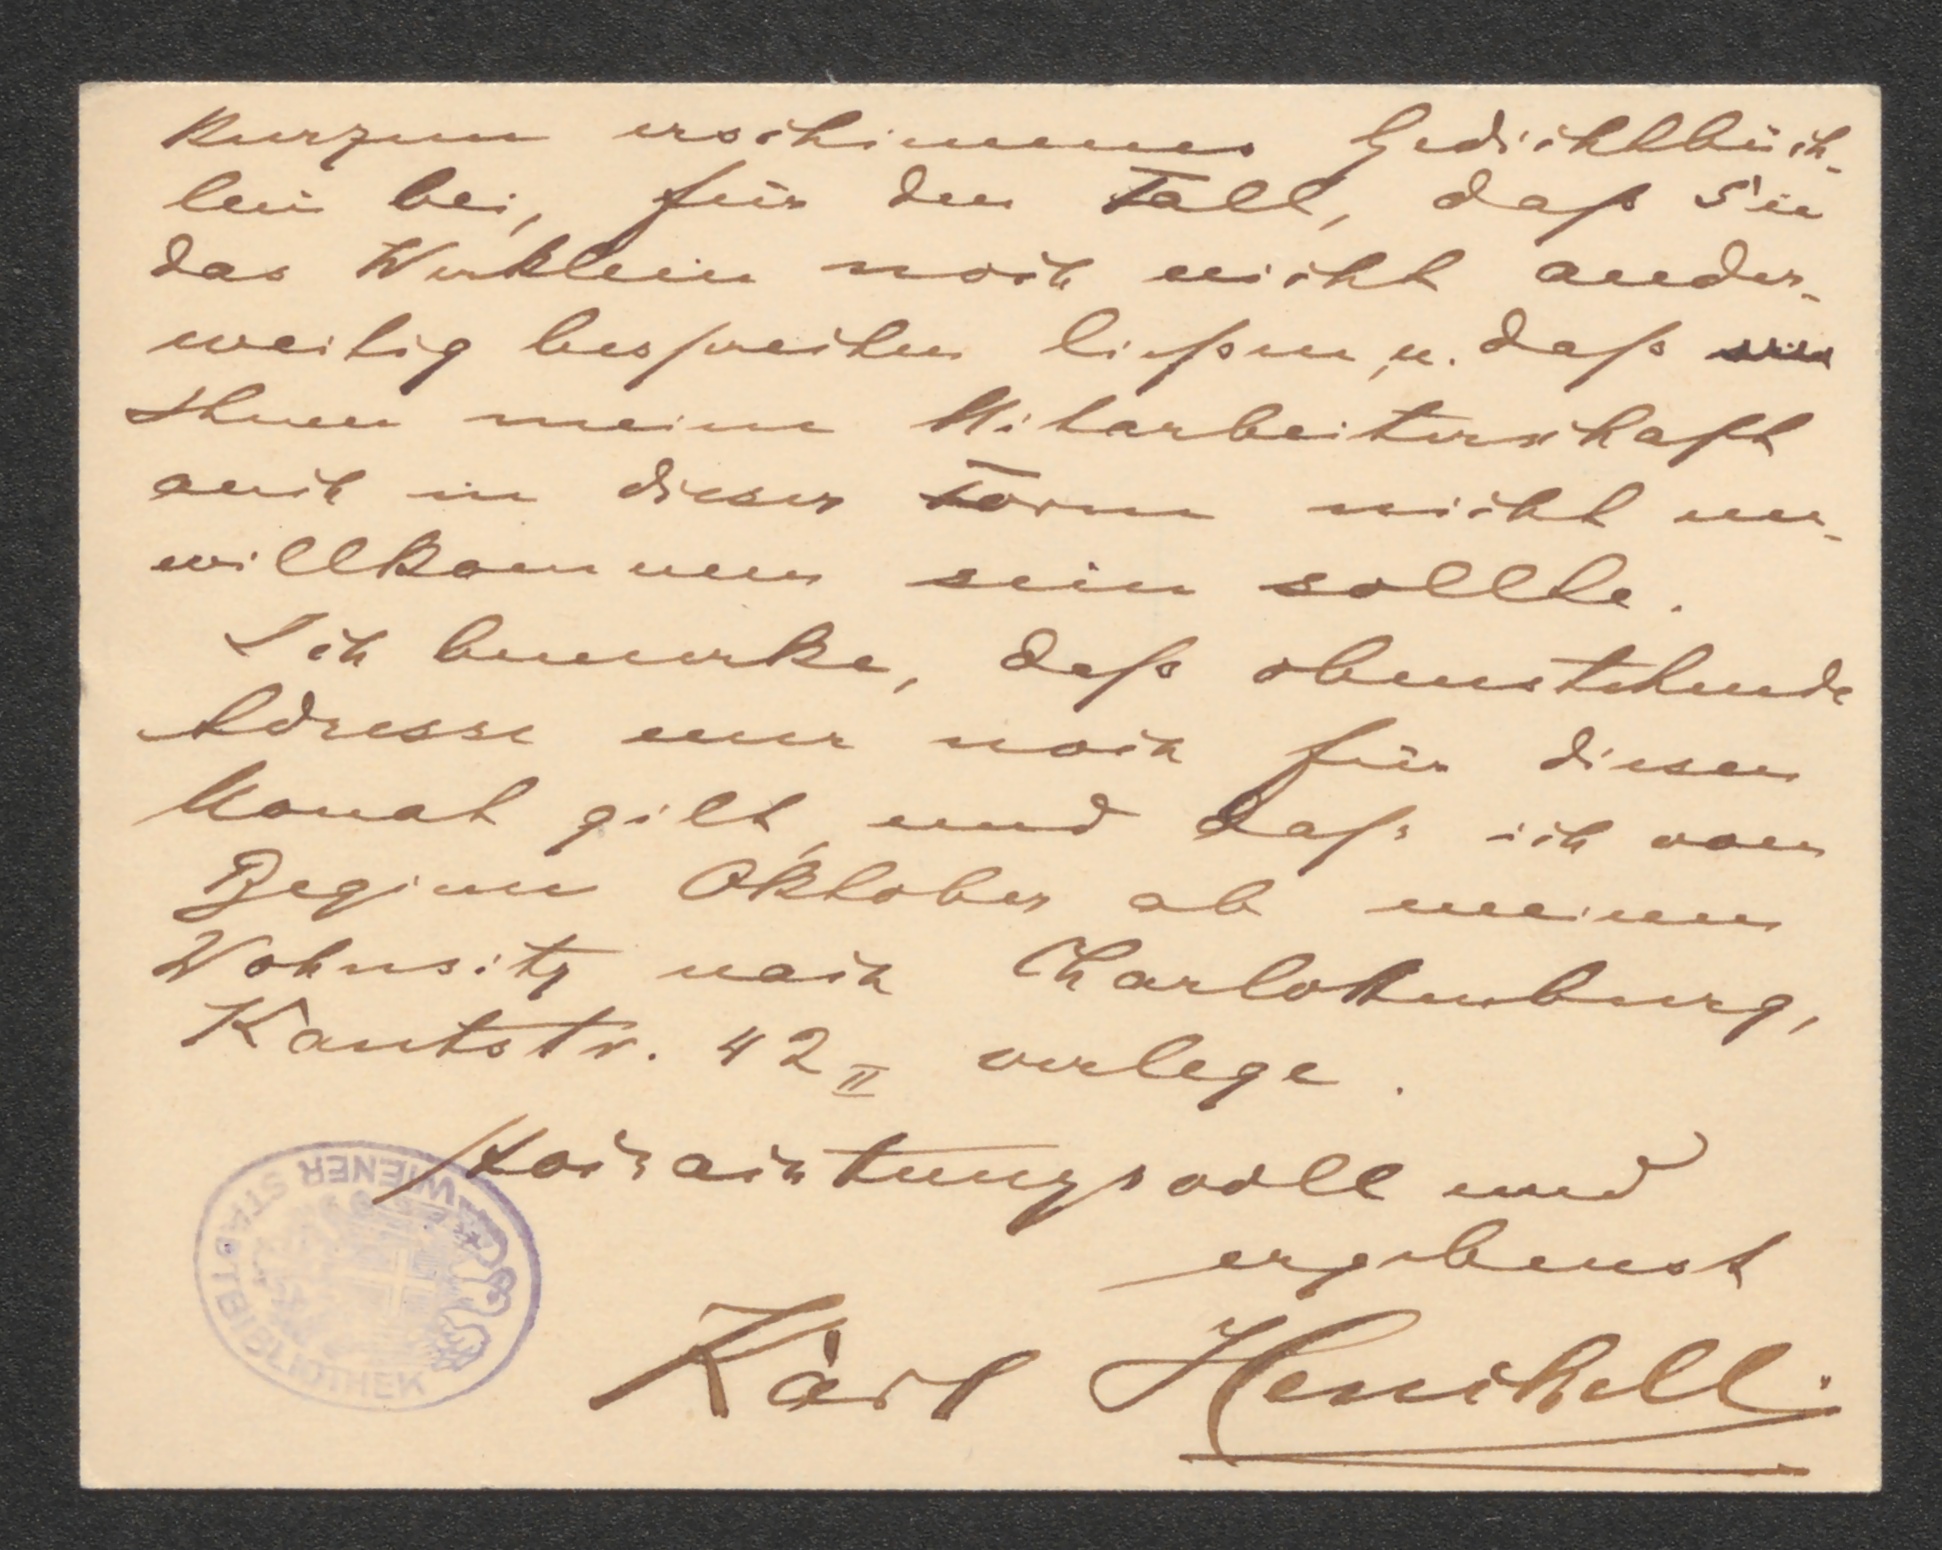 kurzum erschienenes Gedichtbüch-
lein bei, für den Fall, daß Sie
das Werklein noch nicht ander-
weitig besprechen ließen, u. daß
Ihnen meine Mitarbeiterschaft
auch in dieser Form nicht un-
willkommen sein sollte.
Ich bemerke, daß obenstehende
Adresse nur noch für diesen
Monat gilt, und daß ich von
Beginn Oktober ab meinen
Wohnsitz nach Charlottenburg,
Kantstr. 42 II verlege.
Hochachtungsvoll und
ergebenst
Karl Henckell.
WIENER STADTBIBLIOTHEK